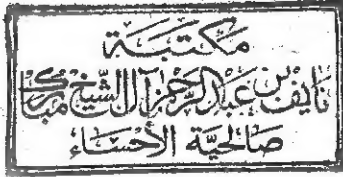 مكتبة
نايف بن عبدالرحمن آل الشيخ مبارك
صالحية الأحساء